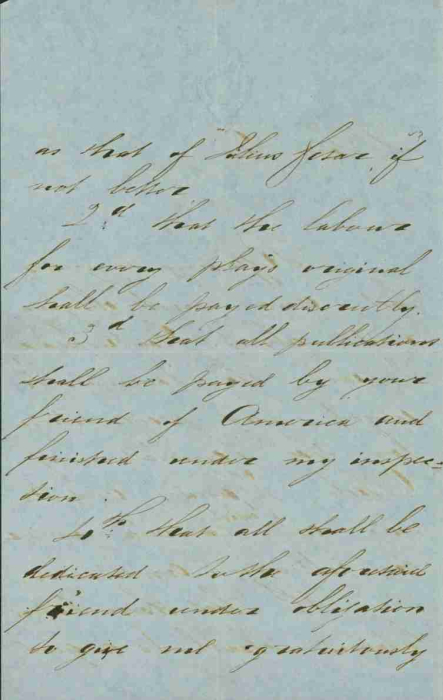 as that of "Julius Cesar", if
not better
2d that the labour
for every plays original
shall be payed discretly.
3d that all publications
shall be payed by your
friend of America and
finished under my inspec=
tion
4th that all shall be
dedicated to the aforesaid
friend under obligation
to give me gratuitously